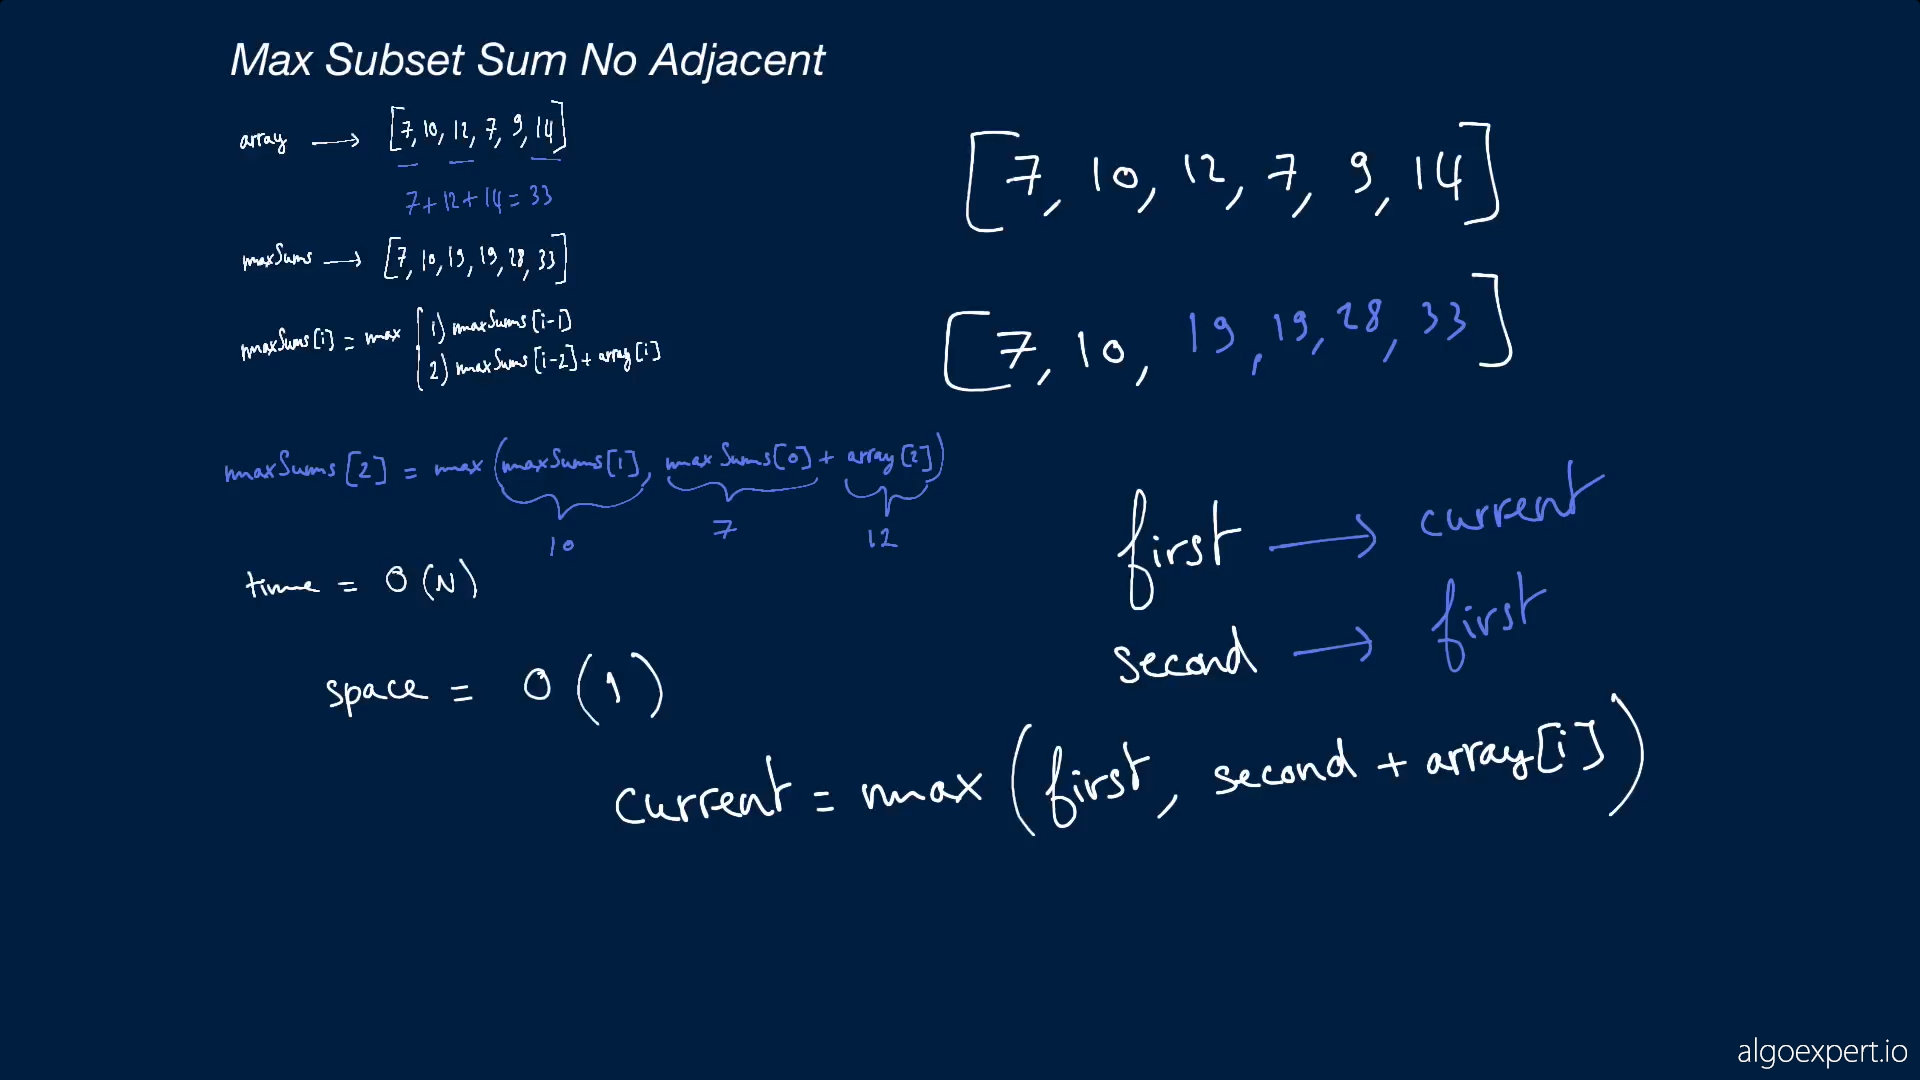 Max Subset Sum No Adjacent
array → [7, 10, 12, 7, 9, 14]
7+12+14=33
maxSums → [7, 10, 19, 19, 28, 33]
maxSums[i] = max { 1) maxSums[i-1]
2) maxSums[i-2] + array[i]
maxSums[2] = max(maxSums[1], maxSums[0] + array[2])
10 7 12
time = O(N)
space = O(1)
[7, 10, 12, 7, 9, 14]
[7, 10, 19, 19, 28, 33]
first → current
second → first
current = max(first, second + array[i])
algoexpert.io